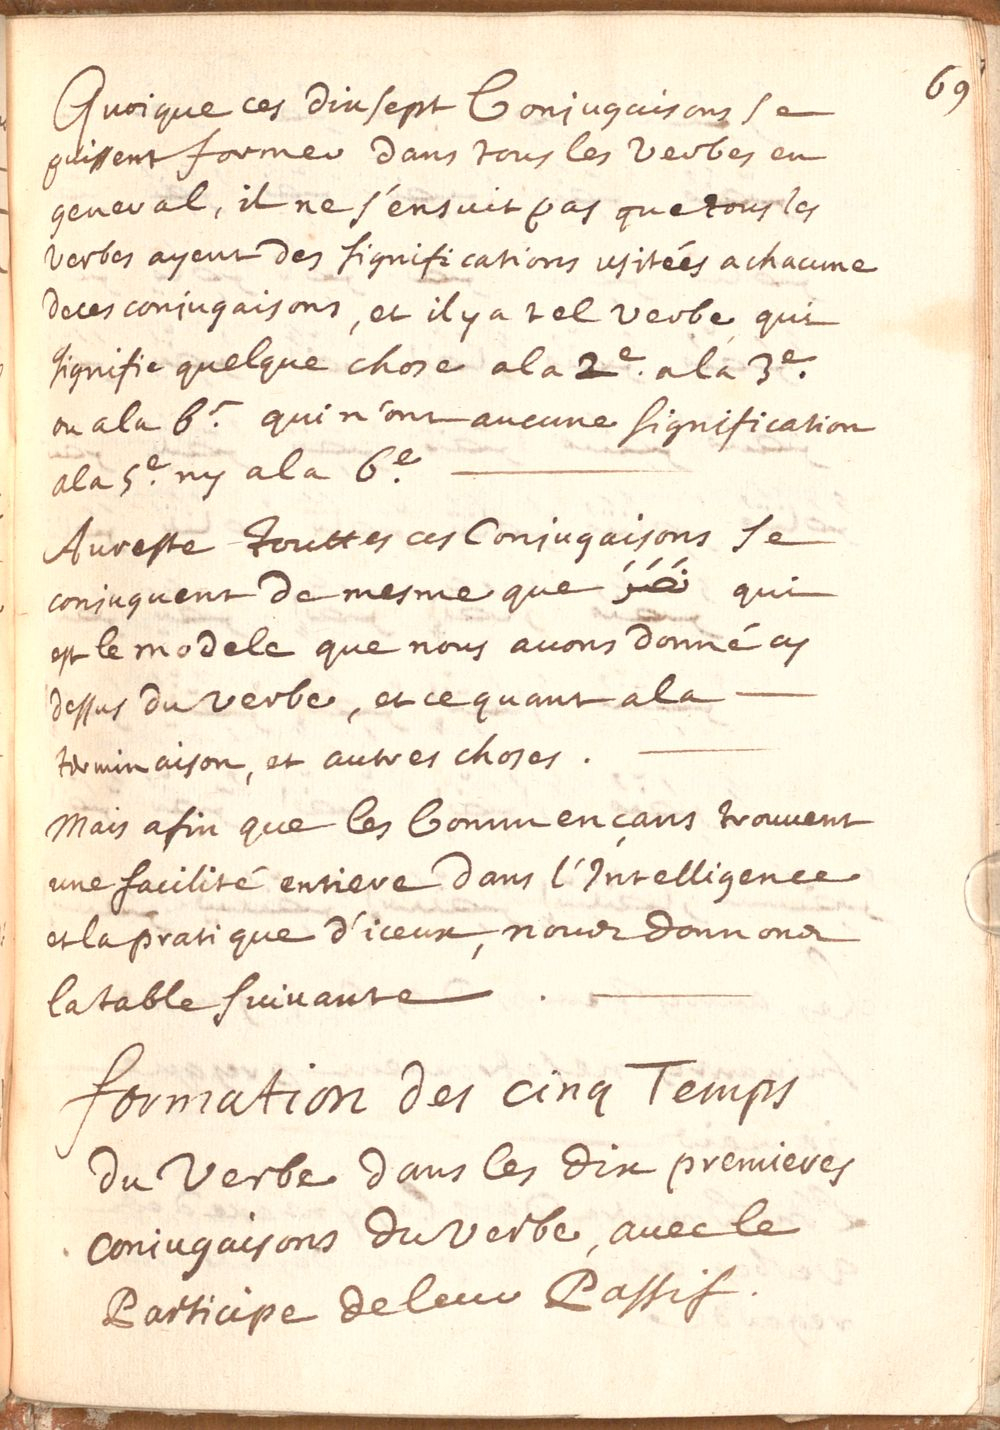 69
Quoique ces dix sept Conjugaisons se
puissent former dans tous les verbes en
general, il ne s'ensuit pas que tous les
verbes ayent des significations usitées a chacune
de ces conjugaisons, et il y a tel verbe qui
signifie quelque chose a la 2e. a la 3e.
ou a la 6e. qui n'ont aucune signification
a la 5e. ny a la 6e.
Au reste touttes ces Conjugaisons se
conjuguent de mesme que qui
est le modele que nous avons donné cy
dessus du verbe, et ce quant a la
terminaison, et autres choses.
Mais afin que les Commençans trouvent
une facilité entiere dans l'Intelligence
et la pratique d'iceux, nous donnons
la table suivante.
formation des cinq Temps
du Verbe dans les dix premieres
conjugaisons du verbe, avec le
Participe de leur Passif.